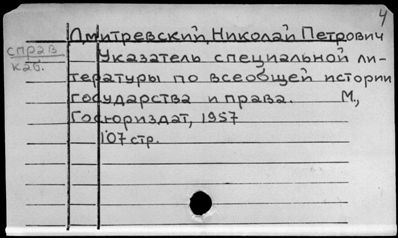 4
Дмитревский, Николай Петрович
справ.
каб.
Указатель специальной ли-
тературы по всеобщей истории
государства и права. М.,
Госюриздат, 1957
107 стр.